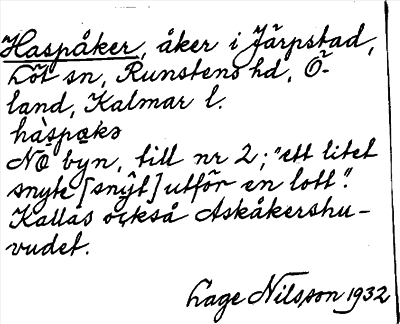 Haspåker, åker i Järpstad,
Löt sn, Runstens hd, Ö-
land, Kalmar l.
hàspo̱kə
NÖ byn, till nr 2; "ett litet
snyte [snŷt] utför en lott".
Kallas också Askåkershu-
vudet.
Lage Nilsson 1932